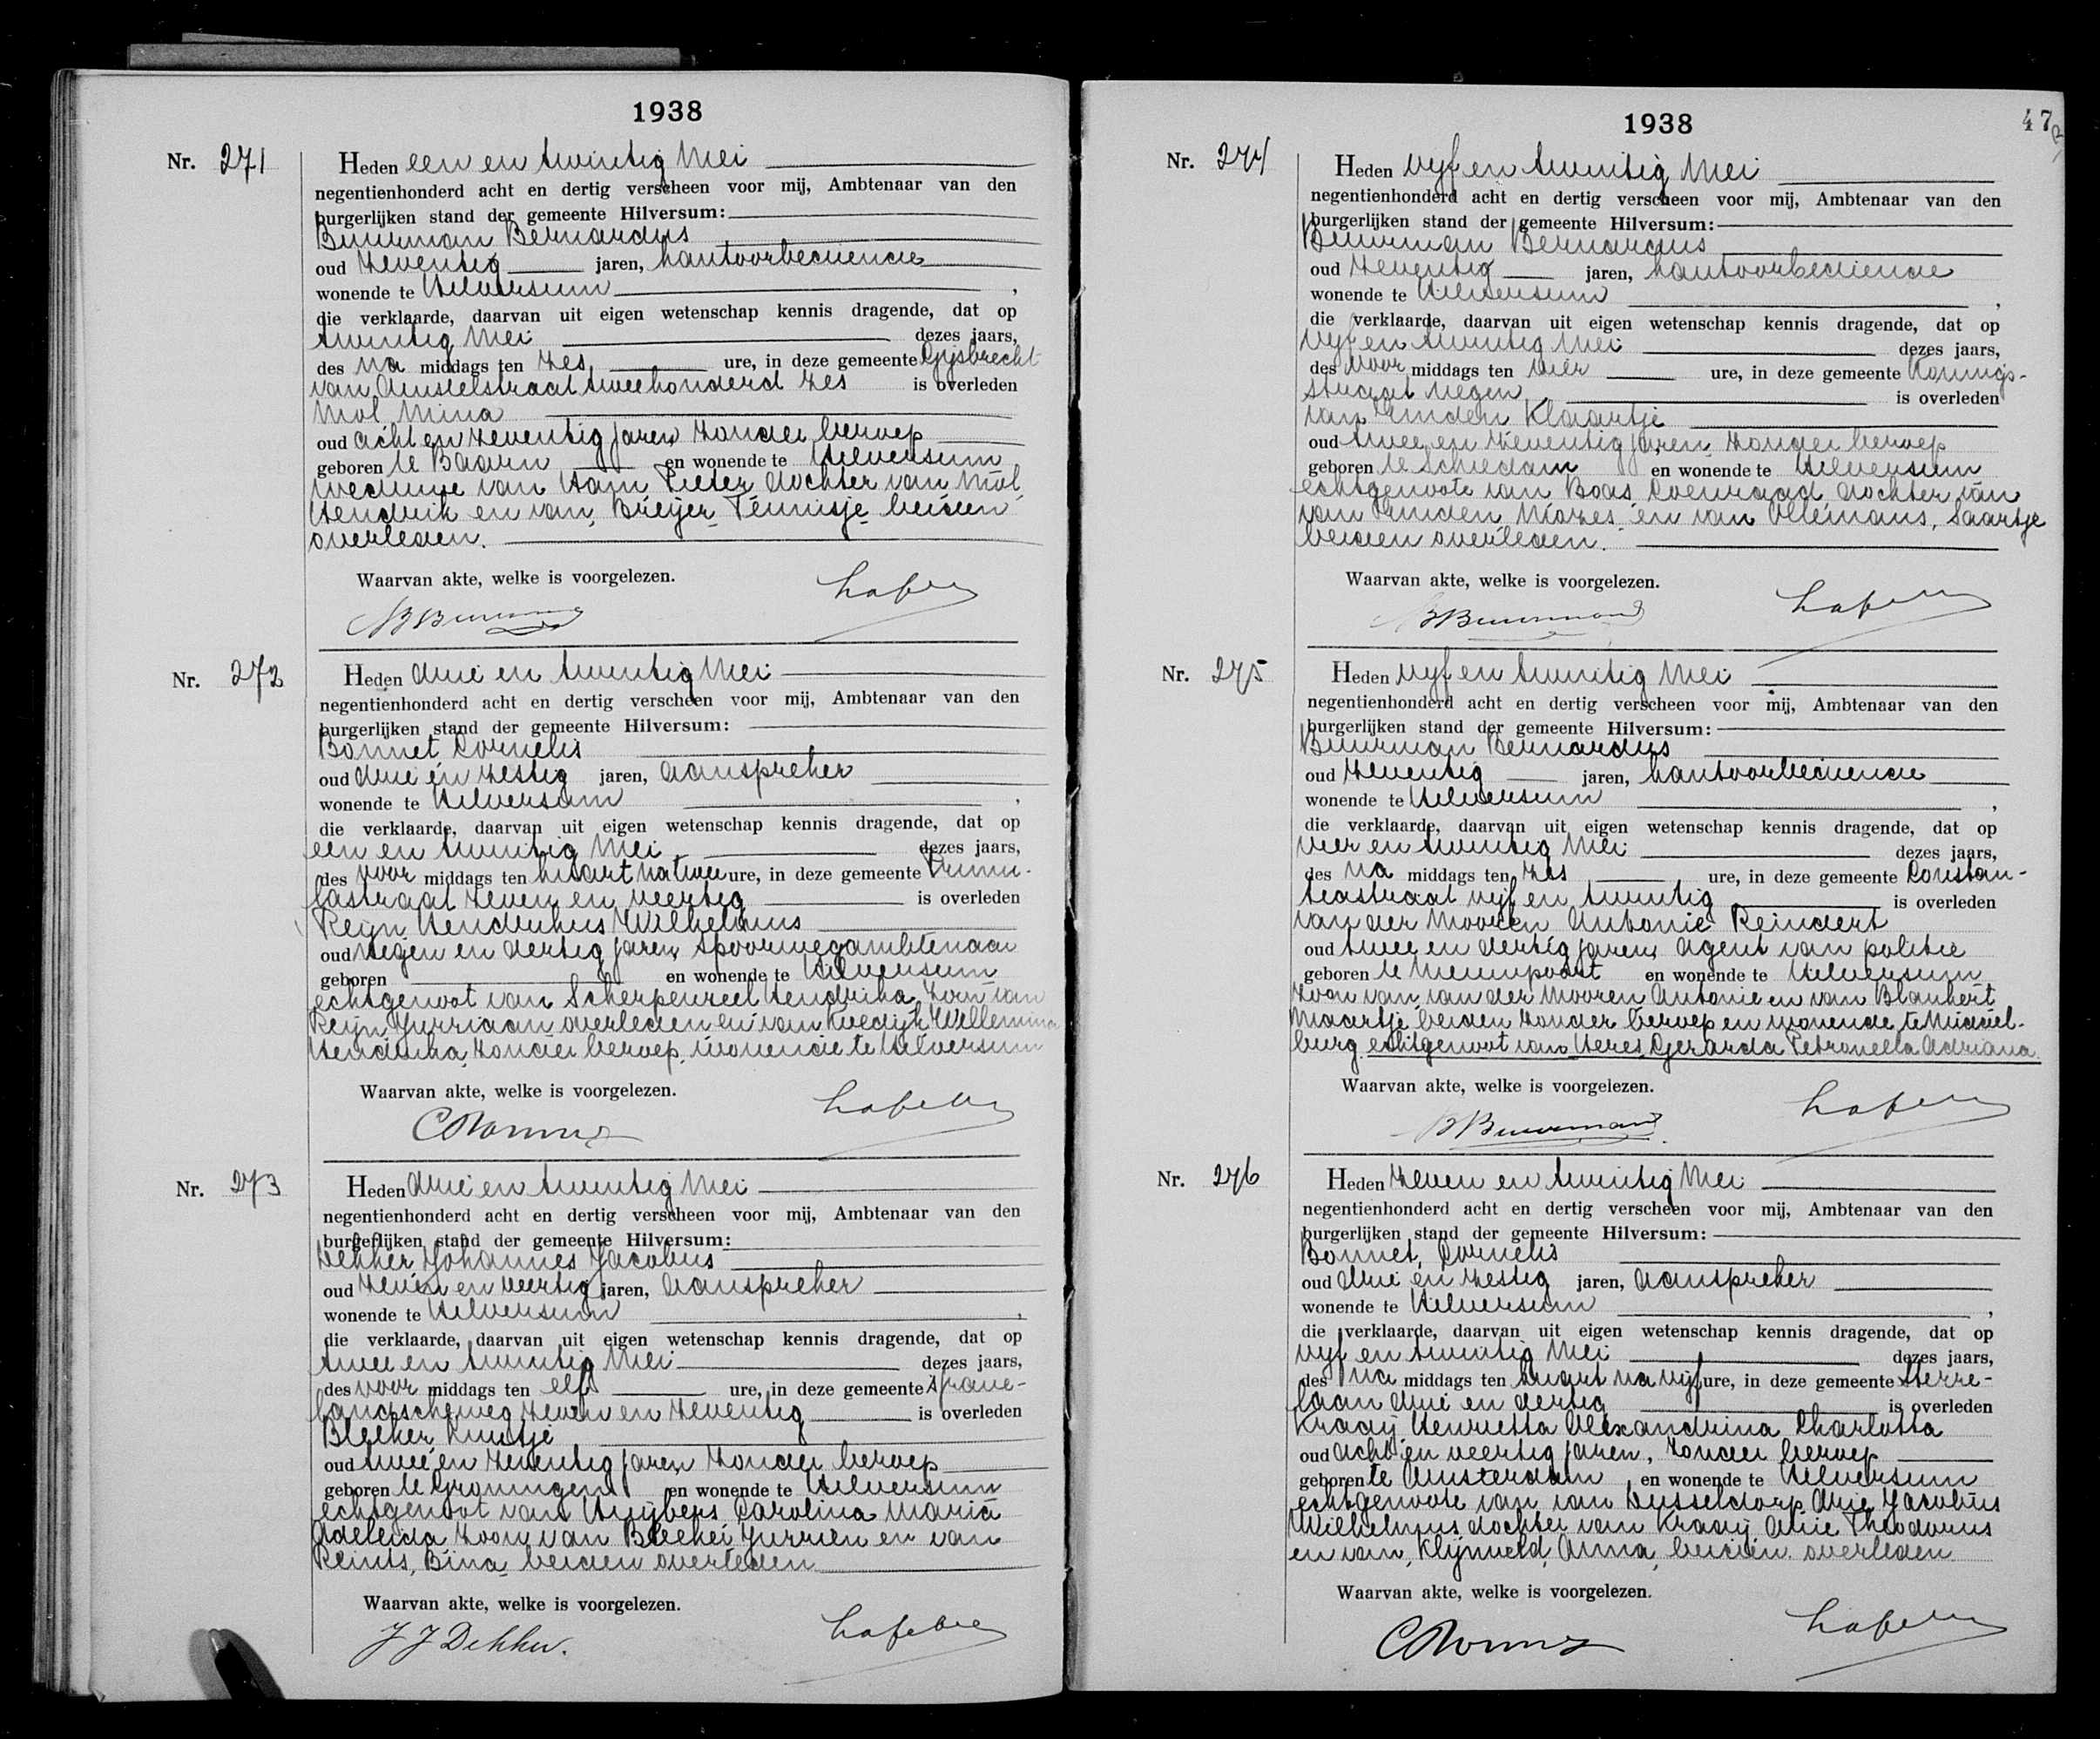 1938
Nr. 271
Heden een en twintig Mei
negentienhonderd acht en dertig verscheen voor mij, Ambtenaar van den
burgerlijken stand der gemeente Hilversum:
Buurman Bernardus
oud zeventig jaren, kantoorbediende
wonende te Hilversum ,
die verklaarde, daarvan uit eigen wetenschap kennis dragende, dat op
twintig Mei dezes jaars,
des na middags ten zes ure, in deze gemeente Gijsbrecht
van Amstelstraat tweehonderd zes is overleden
Mol Mina
oud acht en zeventig jaren zonder beroep
geboren te Baarn en wonende te Hilversum
weduwe van Ham Pieter dochter van Mol
Hendrik en van Breijer Teunisje beiden
overleden.
Waarvan akte, welke is voorgelezen.
BBuurman
Nr. 272
Heden drie en twintig Mei
negentienhonderd acht en dertig verscheen voor mij, Ambtenaar van den
burgerlijken stand der gemeente Hilversum:
Bonnet Cornelis
oud drie en zestig jaren, aanspreker
wonende te Hilversum ,
die verklaarde, daarvan uit eigen wetenschap kennis dragende, dat op
een en twintig Mei dezes jaars,
des voor middags ten kwart na twee ure, in deze gemeente
straat zeven en veertig is overleden
Reijn Hendrikus Wilhelmus
oud negen en dertig jaren spoorwegambtenaar
geboren en wonende te Hilversum
echtgenoot van Scherpenzeel Hendrika zoon van
Reijn Jurriaan overleden en van Kuedijk Willemina
Hendrika zonder beroep, wonende te Hilversum
Waarvan akte, welke is voorgelezen.
CBonnet
Nr. 273
Heden drie en twintig Mei
negentienhonderd acht en dertig verscheen voor mij, Ambtenaar van den
burgerlijken stand der gemeente Hilversum:
Dekker Johannes Jacobus
oud zeven en veertig jaren, aanspreker
wonende te Hilversum ,
die verklaarde, daarvan uit eigen wetenschap kennis dragende, dat op
twee en twintig Mei dezes jaars,
des voor middags ten elf ure, in deze gemeente 's Grave-
landscheweg zeven en zeventig is overleden
Bleeker Kunstje
oud twee en zeventig jaren zonder beroep
geboren te Groningen en wonende te Hilversum
echtgenoot van Huijbers Carolina Maria
Adeleida zoon van Bleeker Jurrien en van
Reints, Bina beiden overleden
Waarvan akte, welke is voorgelezen.
J J Dekker.
1938
47
Nr. 274
Heden vijf en twintig Mei
negentienhonderd acht en dertig verscheen voor mij, Ambtenaar van den
burgerlijken stand der gemeente Hilversum:
Buurman Bernardus
oud zeventig jaren, kantoorbediende
wonende te Hilversum ,
die verklaarde, daarvan uit eigen wetenschap kennis dragende, dat op
vijf en twintig Mei dezes jaars,
des voor middags ten vier ure, in deze gemeente Konings-
straat negen is overleden
van Emden Klaartje
oud twee en zeventig jaren zonder beroep
geboren te Schiedam en wonende te Hilversum
echtgenoote van Boas Coenraad dochter van
van Emden Mozes en van Ellemans, Saartje
beiden overleden.
Waarvan akte, welke is voorgelezen.
BBuurman
Nr. 275
Heden vijf en twintig Mei
negentienhonderd acht en dertig verscheen voor mij, Ambtenaar van den
burgerlijken stand der gemeente Hilversum:
Buurman Bernardus
oud zeventig jaren, kantoorbediende
wonende te Hilversum ,
die verklaarde, daarvan uit eigen wetenschap kennis dragende, dat op
vier en twintig Mei dezes jaars,
des na middags ten zes ure, in deze gemeente Constan-
teastraat vijf en twintig is overleden
van der Mooren Antonie Reindert
oud twee en dertig jaren agent van politie
geboren te Nieuwpoort en wonende te Hilversum
zoon van van der Mooren Antonie en van Blankert
Maartje beiden zonder beroep en wonende te Middel-
burg echtgenoot van Heres Gerarda Petronella Adriana.
Waarvan akte, welke is voorgelezen.
BBuurman
Nr. 276
Heden zeven en twintig Mei
negentienhonderd acht en dertig verscheen voor mij, Ambtenaar van den
burgerlijken stand der gemeente Hilversum:
Bonnet, Cornelis
oud drie en zestig jaren, aanspreker
wonende te Hilversum ,
die verklaarde, daarvan uit eigen wetenschap kennis dragende, dat op
vijf en twintig Mei dezes jaars,
des na middags ten kwart na vijf ure, in deze gemeente Sterre-
laan drie en dertig is overleden
Kraaij Henrietta Alexandrina Charlotta
oud acht en veertig jaren, zonder beroep
geboren te Amsterdam en wonende te Hilversum
echtgenoote van van Dusseldorp Arie Jacobus
Wilhelmus dochter van Kraaij Arie Theodorus
en van Klijnveld Anna, beiden overleden
Waarvan akte, welke is voorgelezen.
CBonnet